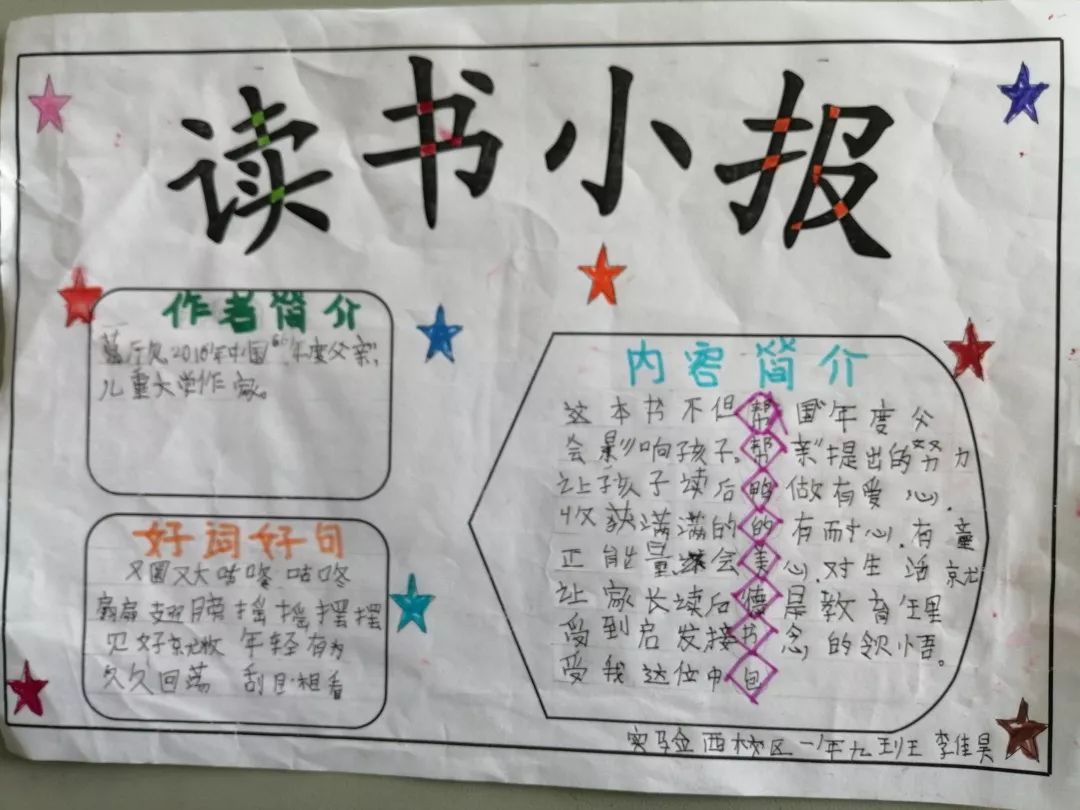 读书小报
作者简介
2016年中国“年度父亲”,
儿童文学作家。
好词好句
又圆又大 咕咚 咕咚
翅膀 摇摇摆摆
见好就收 年轻有为
久久回荡 刮目相看
内容简介
这本书不但帮国“年度父
会影响孩子,帮亲”提出的努力
让孩子读后鸭做有爱心,
收获满满的的有耐心,有童
正能量,还会美心,对生活就
让家长读后德是教育理
受到启发接书念,的领悟。
受我这位中包
实验西林校区一年九班 李佳昊